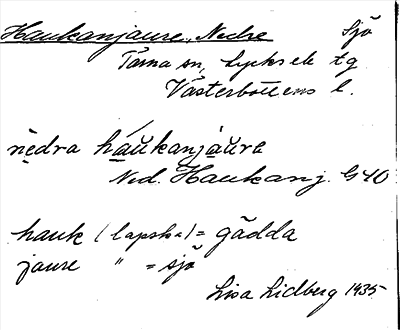 Haukanjaure, Nedre Sjö
Tärna sn, Lycksele tg
Västerbottens l.
nedra háukanjaure
Ned. Haukanj. G40
hauk (lapska) = gädda
jaure " = sjö
Lisa Lidberg 1935